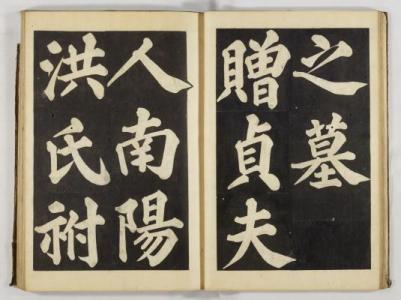 之墓
贈貞夫
人南陽
洪氏祔